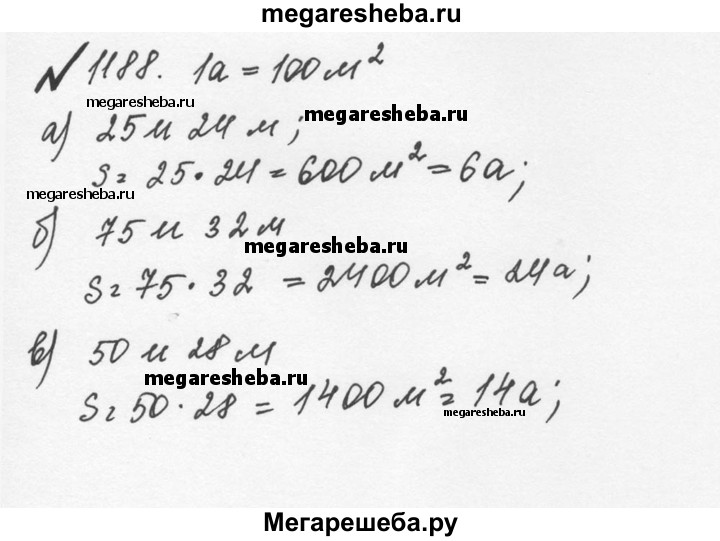 megaresheba.ru
№ 1188. 1а = 100 м²
megaresheba.ru
а) 25 и 24 м; megaresheba.ru
S = 25 · 24 = 600 м² = 6а;
megaresheba.ru
б) 75 и 32 м
megaresheba.ru
S = 75 · 32 = 2400 м² = 24а;
в) 50 и 28 м
megaresheba.ru
S = 50 · 28 = 1400 м² = 14а;
megaresheba.ru
Мегарешеба.ру